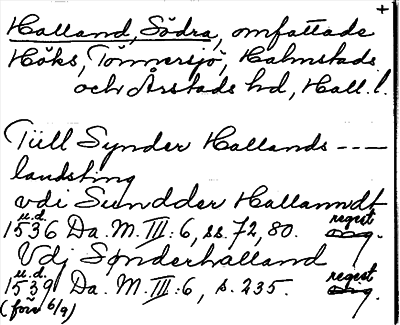 +
Halland, Södra, omfattade
Höks, Tönnersjö, Halmstads
och Årstads hd, Hall. l.
Tiill Synder Hallands ----
landsting
vdi Sundder Hallanndt
u.d. regist
1536 Da. M. III: 6, ss. 72, 80. orig.
Vdj Sønderhalland
u.d. regist
1539 Da. M. III: 6, s. 235. orig.
(före 6/9)